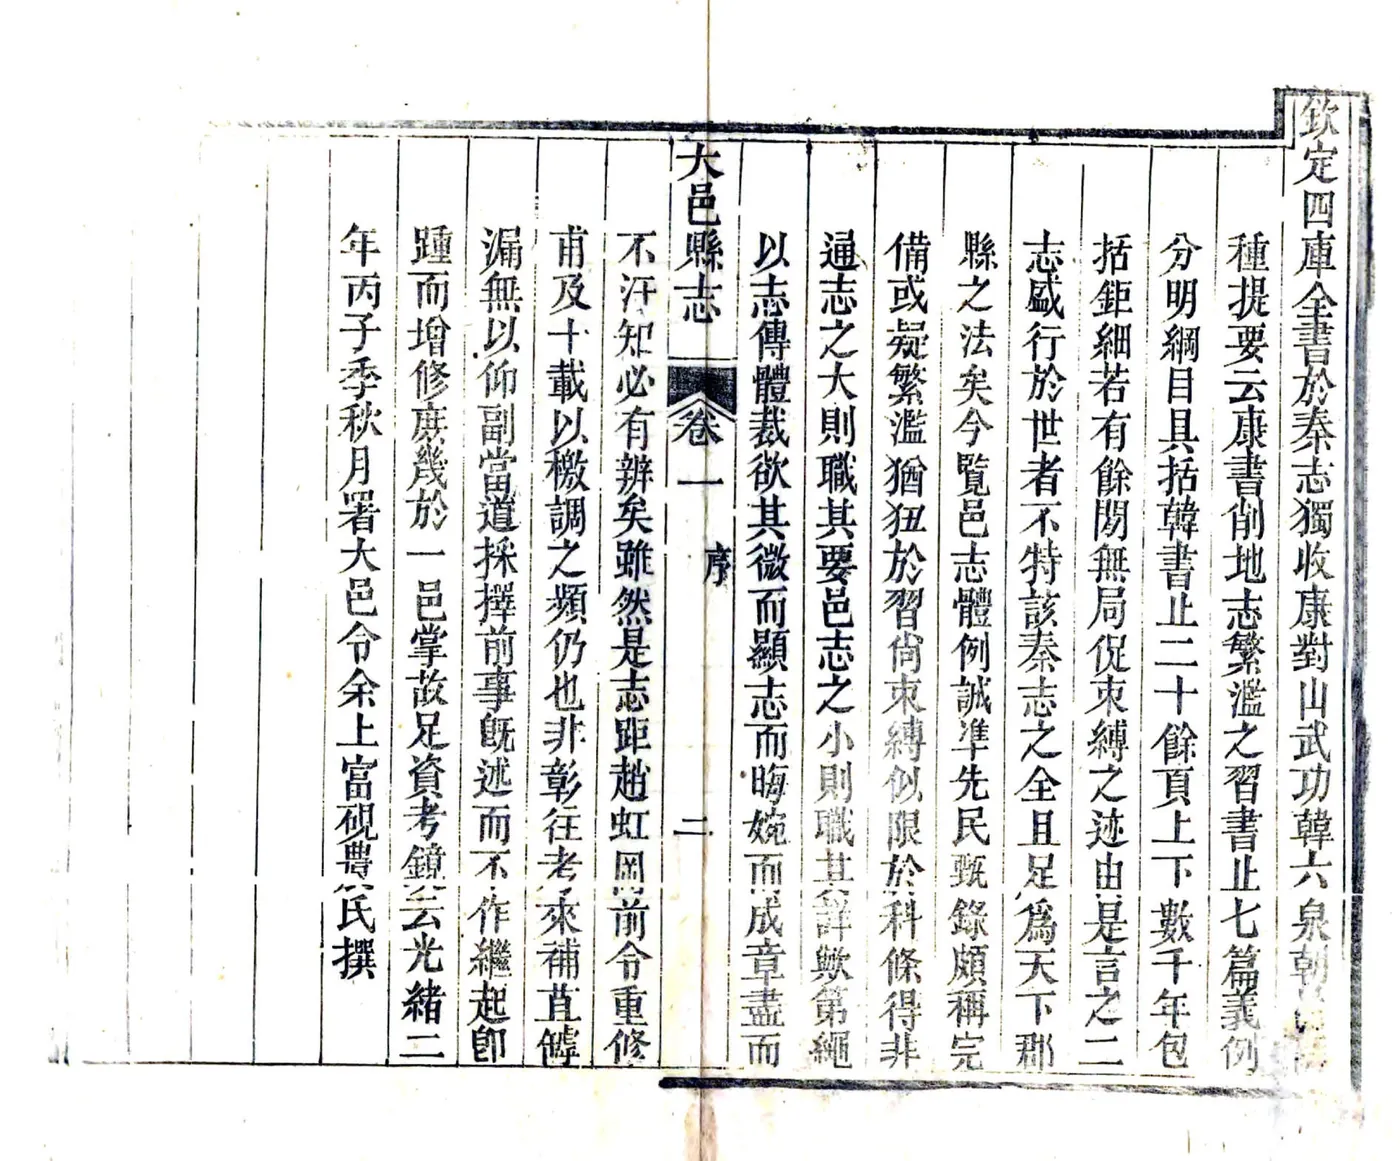 欽定四庫全書於秦志獨收康對山武功韓六泉朝
種提要云康書削地志繁濫之習書止七篇義例
分明綱目具括韓書止二十餘頁上下數千年包
括鉅細若有餘閒無局促束縛之迹由是言之二
志盛行於世者不特該秦志之全且足爲天下郡
縣之法矣今覽邑志體例誠準先民甄錄頗稱完
備或疑繁濫猶狃於習尙束縛似限於科條得非
通志之大則職其要邑志之小則職其詳歟第繩
以志傳體裁欲其微而顯志而晦婉而成章盡而
大邑縣志 卷一 序 二
不汙知必有辨矣雖然是志距趙虹岡前令重修
甫及十載以檄調之頻仍也非彰往考來補苴罅
漏無以仰副當道採擇前事旣述而不作繼起卽
踵而增修庶幾於一邑掌故足資考鏡云光緒二
年丙子季秋月署大邑令余上富硯農氏撰